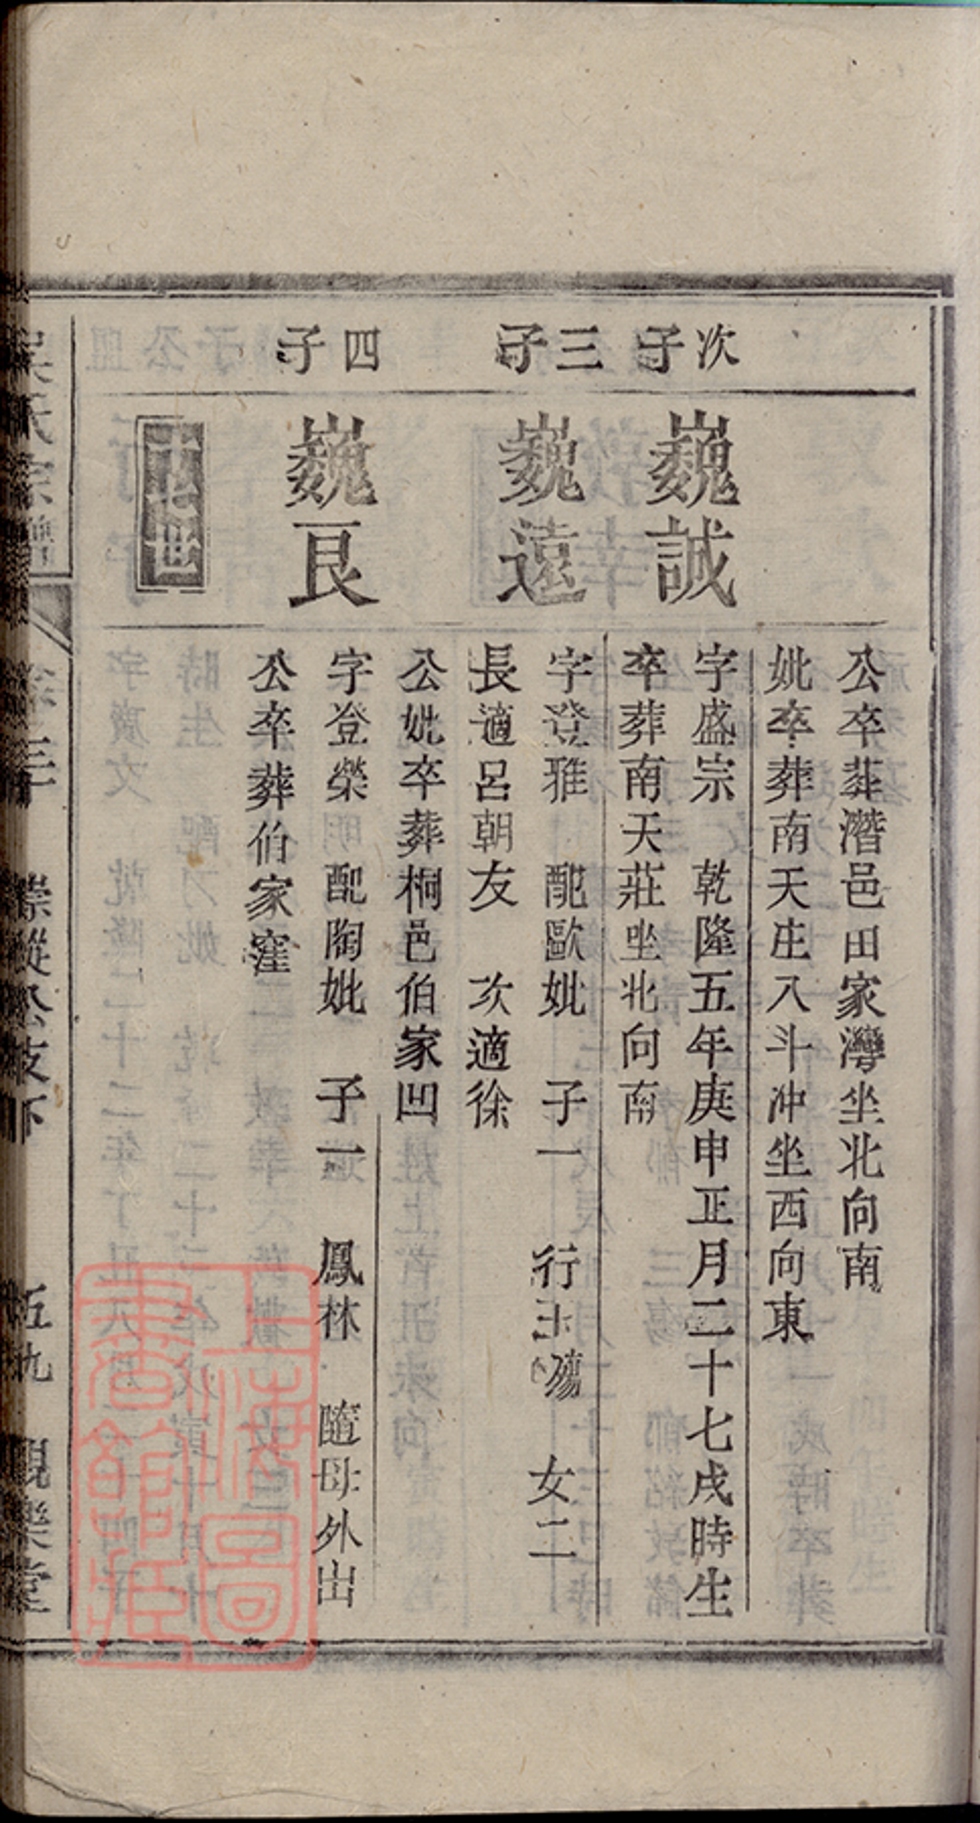 公卒葬潛邑田家灣坐北向南
妣卒葬南天庄入斗冲坐西向東
次子
巍誠
字盛宗 乾隆五年庚申正月二十七戌時生
卒葬南天莊坐北向南
三子
巍遠
字登雅 配歐妣 子一 行玉殤 女二
長適呂朝友 次適徐
公妣卒葬桐邑伯家凹
四子
巍良
字登榮 配陶妣 子一 鳳林 隨母外出
公卒葬伯家窪
吳氏宗譜
卷三 公支下 五九 親樂堂
上海圖書館藏